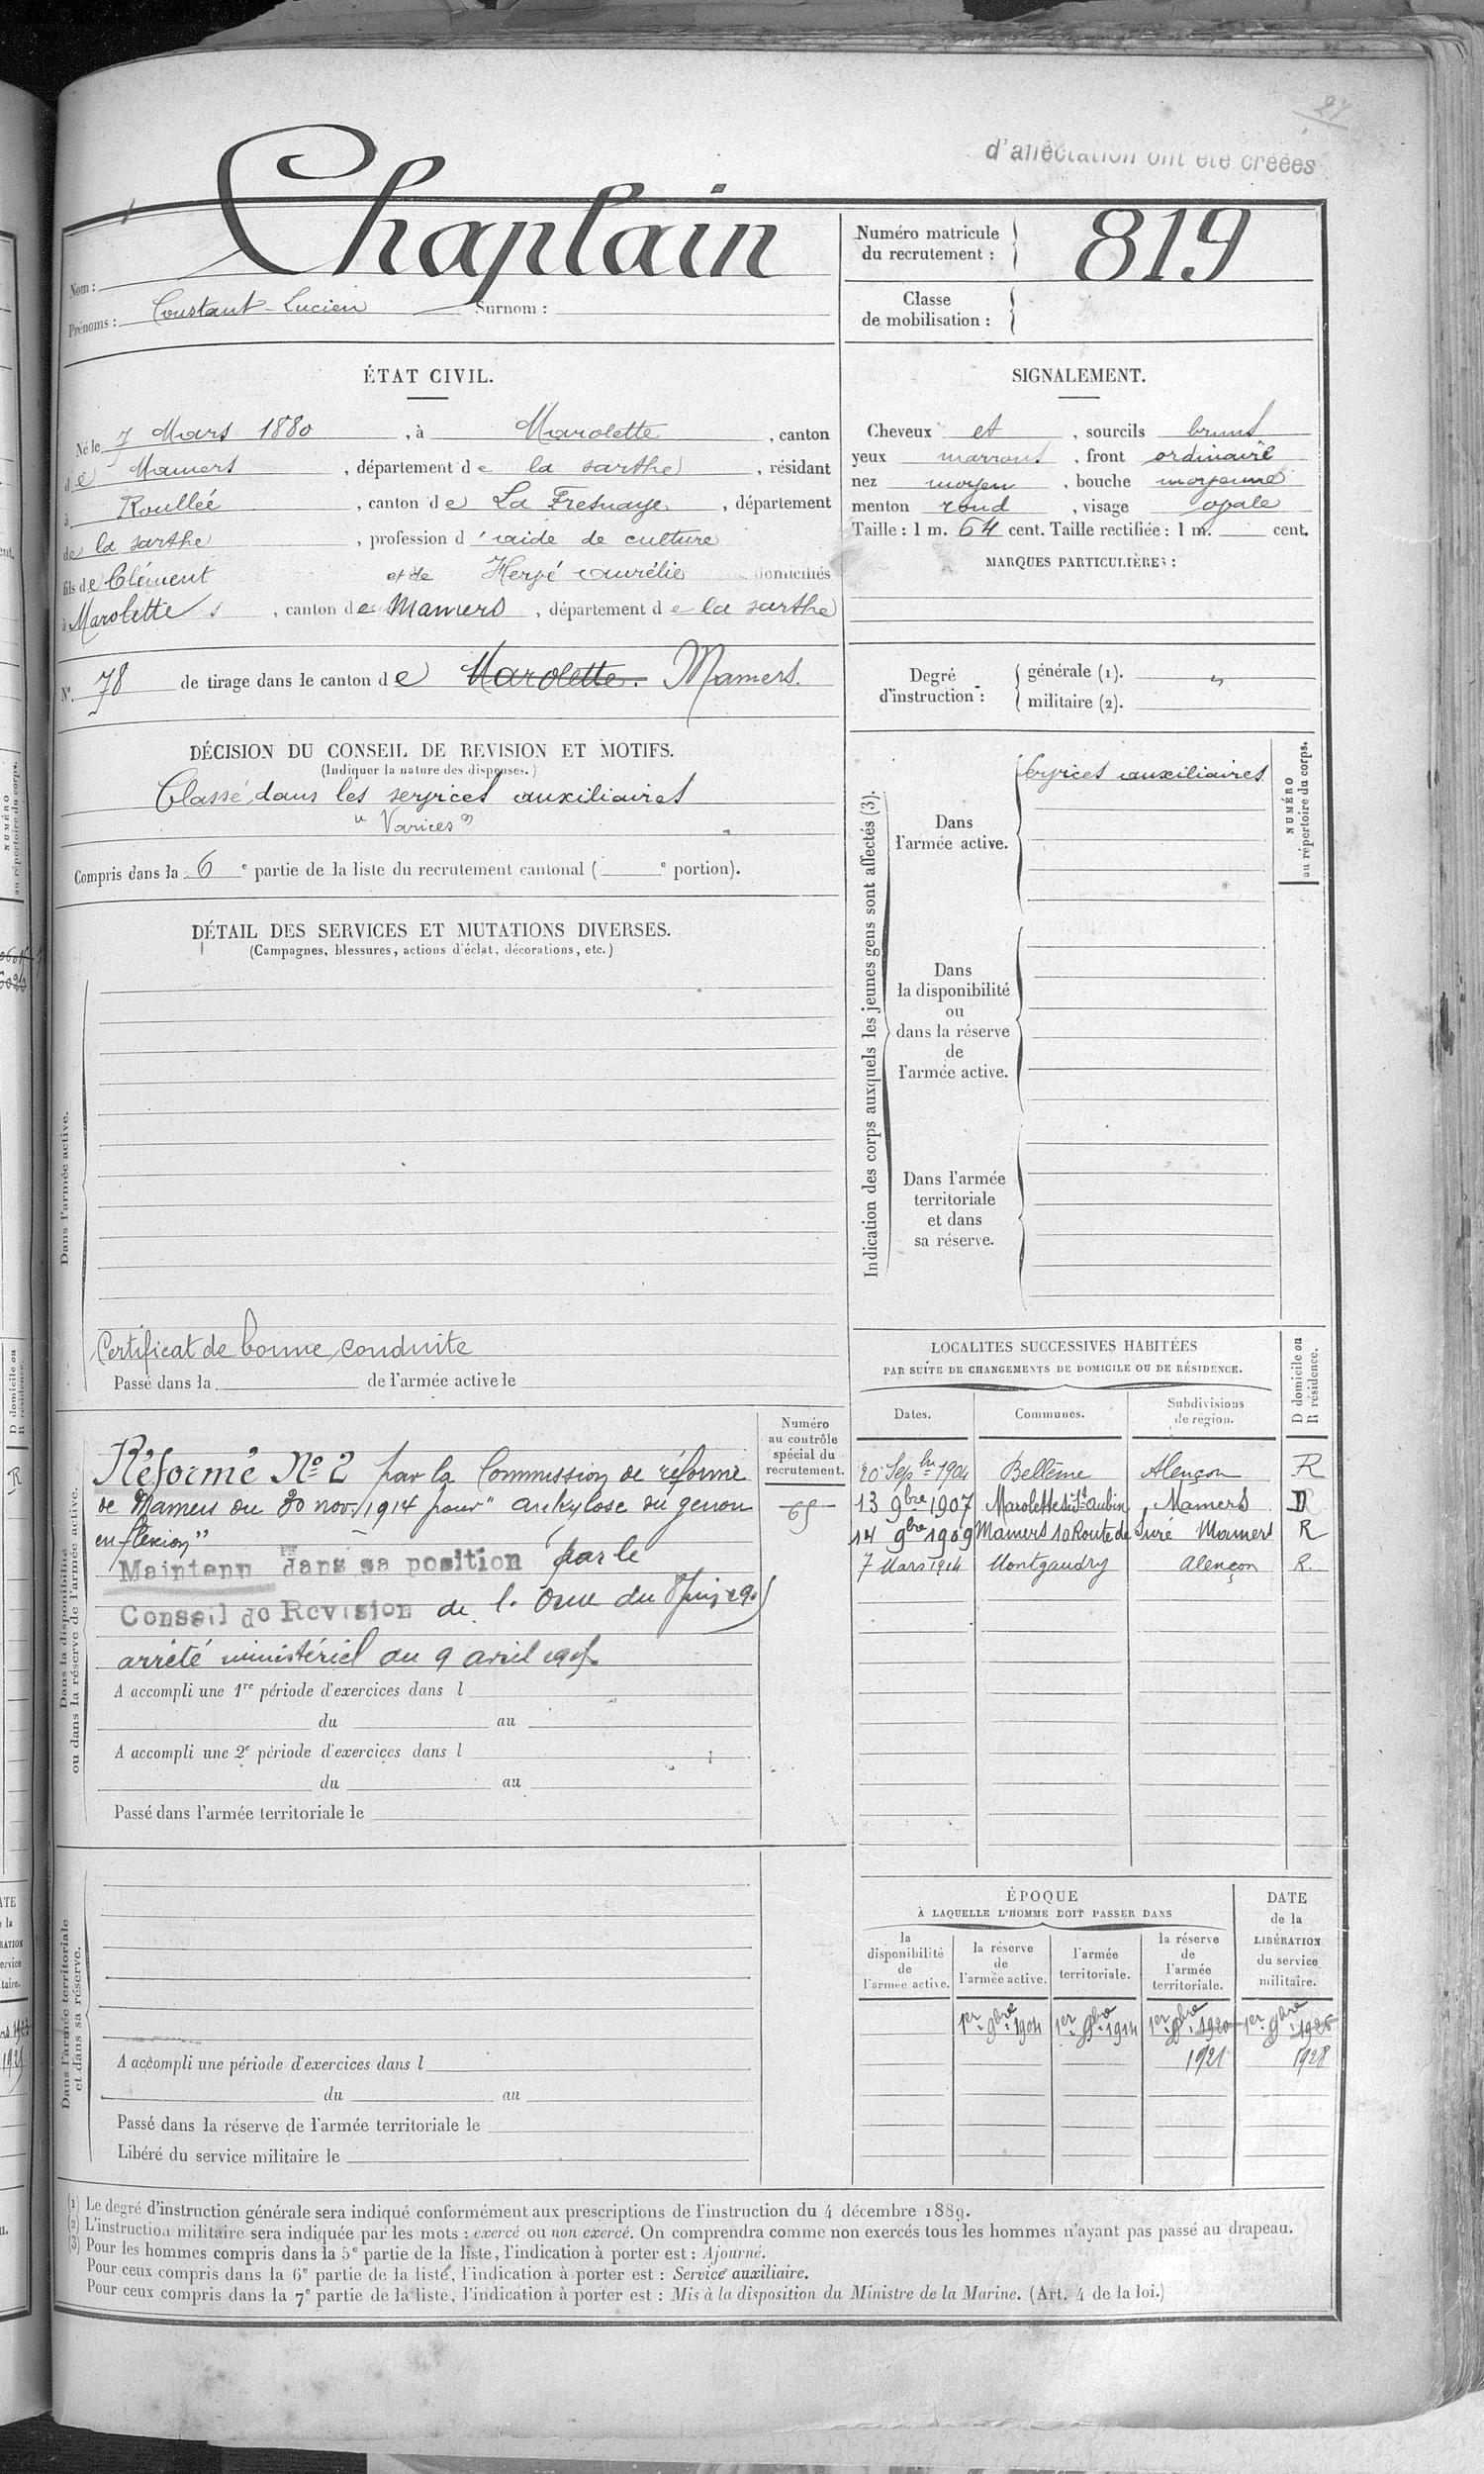 d'affectation ont été créées
Nom : Chaplain
Prénoms : Constant-Lucien Surnom :
Numéro matricule du recrutement : 819
Classe de mobilisation :
ÉTAT CIVIL.
Né le 7 Mars 1880, à Marolette, canton
de Mamers, département de la sarthe, résidant
à Roullée, canton de La Fresnaye, département
de la sarthe, profession d'aide de culture
fils de Clément et de Hervé Aurélie domiciliés
à Marolette, canton de Mamers, département de la sarthe
N° 78 de tirage dans le canton de Marolette. Mamers.
SIGNALEMENT.
Cheveux et, sourcils bruns
yeux marrons, front ordinaire
nez moyen, bouche moyenne
menton rond, visage ovale
Taille : 1 m. 64 cent. Taille rectifiée : 1 m. cent.
MARQUES PARTICULIÈRES :
Degré d'instruction : générale (1). "
militaire (2).
DÉCISION DU CONSEIL DE REVISION ET MOTIFS.
(Indiquer la nature des dispenses.)
Classé dans les services auxiliaires
"Varices"
Compris dans la 6e partie de la liste du recrutement cantonal ( e portion).
DÉTAIL DES SERVICES ET MUTATIONS DIVERSES.
(Campagnes, blessures, actions d'éclat, décorations, etc.)
Dans l'armée active.
Certificat de bonne conduite
Passé dans la de l'armée active le
Indication des corps auxquels les jeunes gens sont affectés (3).
Dans l'armée active.
Services auxiliaires
Dans la disponibilité ou dans la réserve de l'armée active.
Dans l'armée territoriale et dans sa réserve.
NUMÉRO au répertoire du corps.
Dans la disponibilité ou dans la réserve de l'armée active.
Numéro au contrôle spécial du recrutement.
Réformé No 2 par la Commission de réforme
de Mamers du 30 nov. 1914 pour "ankylose du genou
en flexion"
65
Maintenu dans sa position par le
Conseil de Revision de l'Orne du
arrêté ministériel du 9 avril
A accompli une 1re période d'exercices dans l
du au
A accompli une 2e période d'exercices dans l
du au
Passé dans l'armée territoriale le
LOCALITES SUCCESSIVES HABITÉES
PAR SUITE DE CHANGEMENTS DE DOMICILE OU DE RÉSIDENCE.
Dates. Communes. Subdivisions de région. D domicile ou R résidence.
20 Sepbre 1904 Bellême Alençon R
13 9bre 1907 Marolette St Aubin Mamers D
14 9bre 1909 Mamers 10 Route de Suré Mamers R
7 Mars 1914 Montgaudry Alençon R.
Dans l'armée territoriale et dans sa réserve.
A accompli une période d'exercices dans l
du au
Passé dans la réserve de l'armée territoriale le
Libéré du service militaire le
ÉPOQUE
À LAQUELLE L'HOMME DOIT PASSER DANS
DATE de la LIBÉRATION du service militaire.
la disponibilité de l'armée active.
la réserve de l'armée active.
l'armée territoriale.
la réserve de l'armée territoriale.
1er 9bre 1904 1er 9bre 1914 1er 9bre 1920 1er 9bre 1926
1921 1928
(1) Le degré d'instruction générale sera indiqué conformément aux prescriptions de l'instruction du 4 décembre 1889.
(2) L'instruction militaire sera indiquée par les mots : exercé ou non exercé. On comprendra comme non exercés tous les hommes n'ayant pas passé au drapeau.
(3) Pour les hommes compris dans la 5e partie de la liste, l'indication à porter est : Ajourné.
Pour ceux compris dans la 6e partie de la liste, l'indication à porter est : Service auxiliaire.
Pour ceux compris dans la 7e partie de la liste, l'indication à porter est : Mis à la disposition du Ministre de la Marine. (Art. 4 de la loi.)